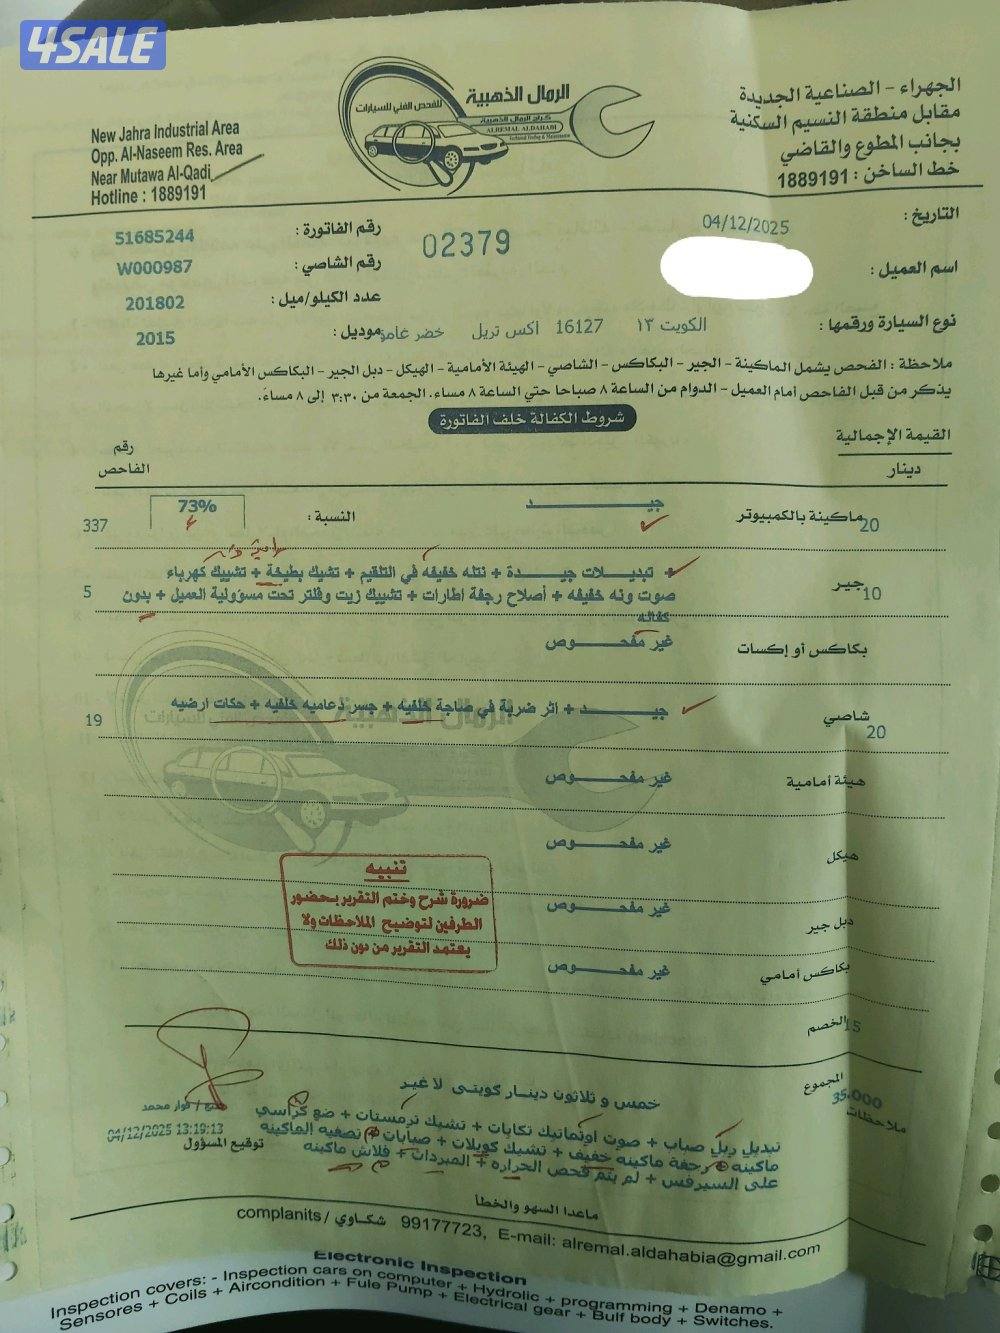 4SALE
New Jahra Industrial Area
Opp. Al-Naseem Res. Area
Near Mutawa Al-Qadi
Hotline : 1889191
الرمال الذهبية
للفحص الفني للسيارات
كراج الرمال الذهبية
ALREMAL ALDAHABI
الجهراء - الصناعية الجديدة
مقابل منطقة النسيم السكنية
بجانب المطوع والقاضي
خط الساخن : 1889191
التاريخ : 04/12/2025
رقم الفاتورة : 51685244
02379
اسم العميل :
رقم الشاصي : W000987
عدد الكيلو/ميل : 201802
نوع السيارة ورقمها : الكويت ١٣ 16127 اكس تريل خضر غامق
موديل : 2015
ملاحظة : الفحص يشمل الماكينة - الجير - البكاكس - الشاصي - الهيئة الأمامية - الهيكل - دبل الجير - البكاكس الأمامي وأما غيرها
يذكر من قبل الفاحص أمام العميل - الدوام من الساعة ٨ صباحا حتي الساعة ٨ مساء. الجمعة من ٣:٣٠ إلى ٨ مساءً.
شروط الكفالة خلف الفاتورة
القيمة الإجمالية
دينار
رقم
الفاحص
20 ماكينة بالكمبيوتر جيـــد النسبة : 73% 337
10 جير + تبديـــلات جيـــدة + نتله خفيفه في التلقيم + تشيك بطيخة + تشييك كهرباء
صوت ونه خفيفه + أصلاح رجفة اطارات + تشييك زيت وفلتر تحت مسؤولية العميل + بدون 5
كفاله
بكاكس أو إكسات غير مفحـــوص
شاصي 20 جيـــد + اثر ضربة في صاجة خلفيه + جسر دعاميه خلفيه + حكات ارضيه 19
هيئة أمامية غير مفحـــوص
هيكل غير مفحـــوص
دبل جير غير مفحـــوص
بكاكس أمامي غير مفحـــوص
تنبيه
ضرورة شرح وختم التقرير بحضور
الطرفين لتوضيح الملاحظات ولا
يعتمد التقرير من دون ذلك
الخصم 15
المجموع 35.000
خمس و ثلاثون دينـار كويتى لا غير
ملاحظات
تبديل ربل صباب + صوت اوتماتيك تكايات + تشيك ترمستات + ضع كراسي
ماكينه + رجفة ماكينه خفيف + تشيك كويلات + صبابات + تصفيه الماكينه
على السيرفس + لم يتم فحص الحراره + المبردات + فلاش ماكينه
فواز محمد
04/12/2025 13:19:13
توقيع المسؤول
ماعدا السهو والخطأ
complanits / شكاوي 99177723, E-mail: alremal.aldahabia@gmail.com
Electronic Inspection
Inspection covers: - Inspection cars on computer + Hydrolic + programming + Denamo +
Sensores + Coils + Aircondition + Fule Pump + Electrical gear + Bulf body + Switches.